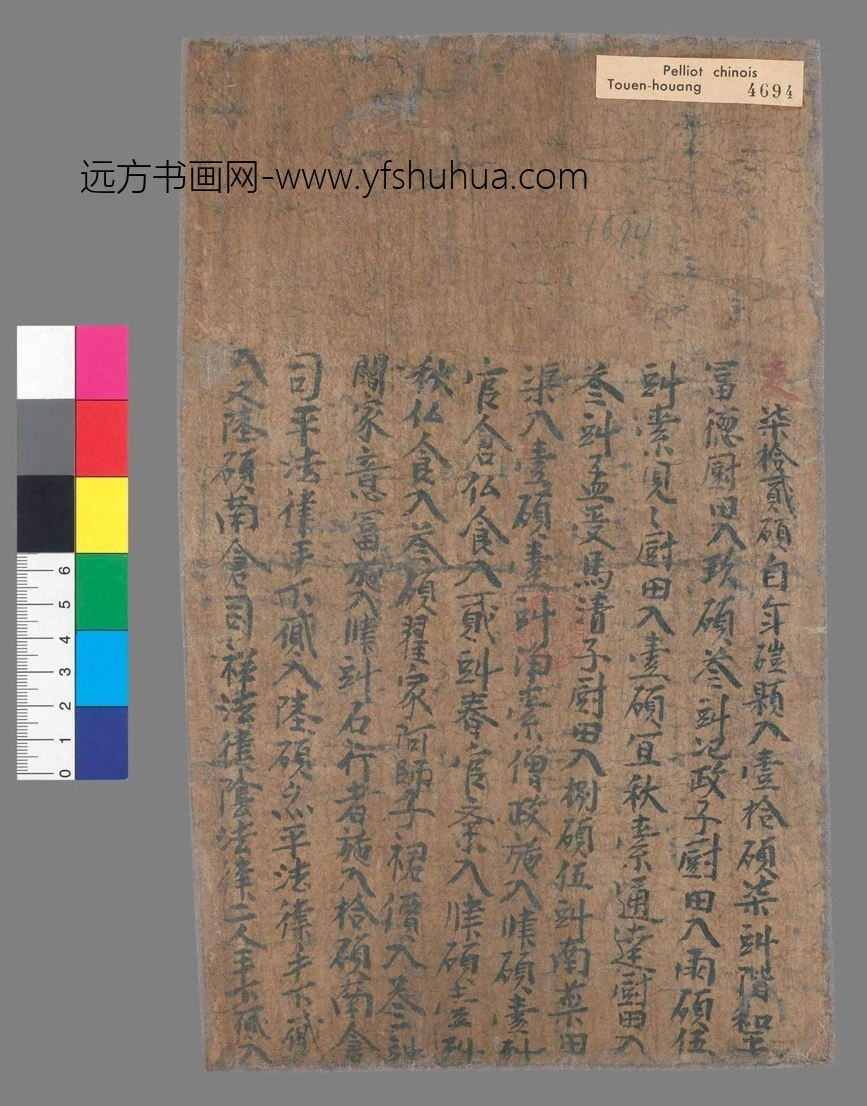 Pelliot chinois
Touen-houang 4694
远方书画网-www.yfshuhua.com
4694
柒拾貳碩自年磑顆入壹拾碩柒㪷階和
富德厨田入玖碩叁㪷氾政子厨田入兩碩伍
㪷索現〻厨田入壹碩宜秋索通達厨田入
叁㪷孟受馬清子厨田入捌碩伍㪷南菜田
渠入壹碩壹㪷索僧政施入碩壹㪷
官倉仏食入貳㪷春官齋入碩壹㪷
秋仏食入叁碩翟家阿師子裙價入叁㪷
闍家意冨施入㪷石行者施入拾碩南倉
司平法律手下䑛入陸碩平法律手下䑛
入又陸碩南倉司祥法律陰法律二人手下䑛入
6
5
4
3
2
1
0